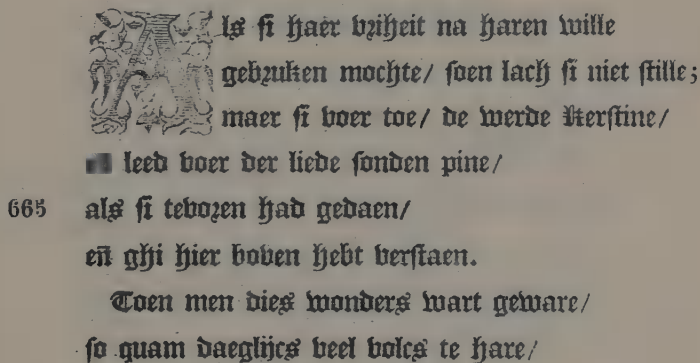 Als si haer vriheit na haren wille
gebruken mochte/ soen lach si niet stille;
maer si voer toe/ de werde Kerstine/
leed voer der liede sonden pine/
665 als si tevoren had gedaen/
eñ ghi hier boven hebt verstaen.
Toen men dies wonders wart geware/
so quam daeglijcs veel volcs te hare/